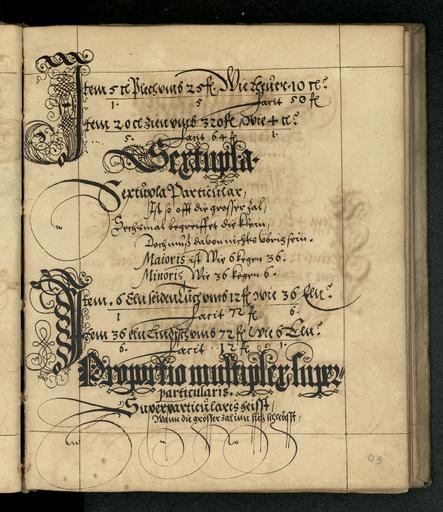 Item 5 ct Piech umb 25 fl. Wie theuer 10 ct.
1. 5 facit 50 fl
Item 20 ct Zien umb 320 fl, Wie 4 ct.
5. facit 64 fl 1.
Sextupla.
Sextupla Particular,
Ist so offt die grosser zal,
Sechsmal begreiffet die klein,
Doch muß davon nichts übrig sein.
Maioris ist Wie 6 kegen 36.
Minoris Wie 36 kegen 6.
Item 6 Eln seiden Tuch umb 12 fl wie 36 Eln.
1 facit 72 fl 6.
Item 36 Eln umb 72 fl Wie 6 Eln.
6. facit 12 fl 1.
Proportio multiplex super
particularis.
Superparticularis heist,
Wann die grösser zal inn sich schleust,
93